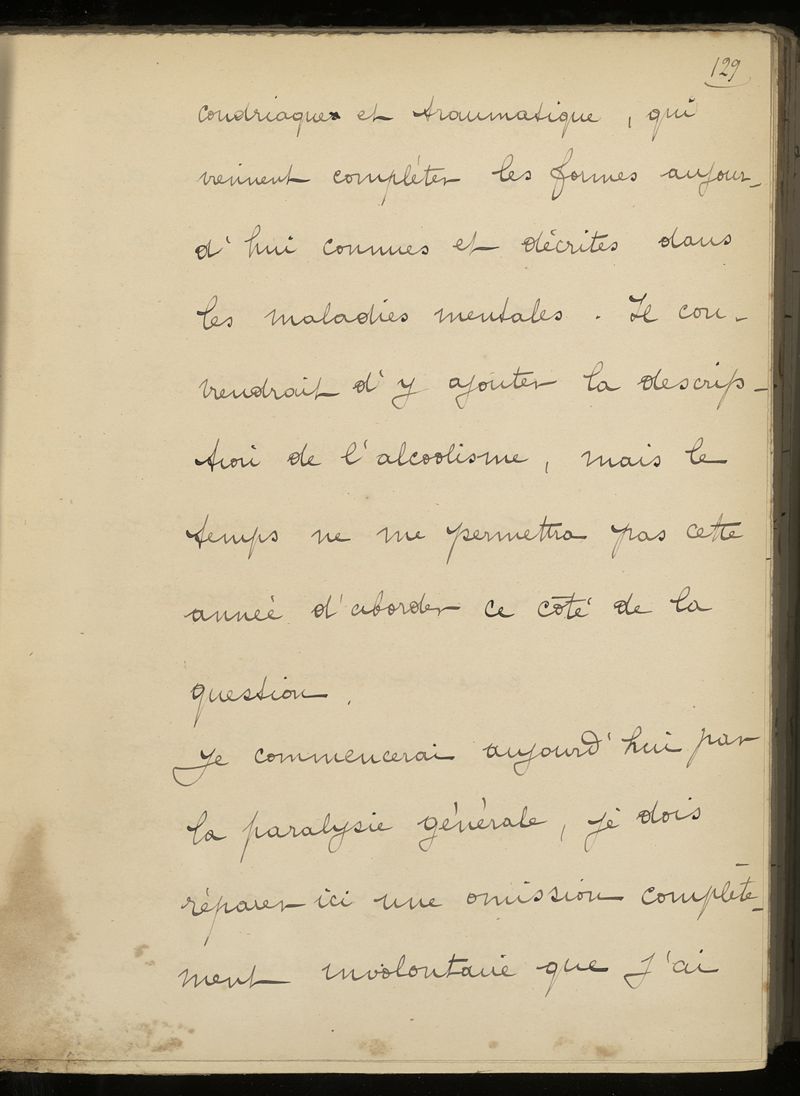 129
condriaque et traumatique, qui
viennent compléter les formes aujour-
d'hui connues et décrites dans
les maladies mentales. Il con-
viendrait d'y ajouter la descrip-
tion de l'alcoolisme, mais le
temps ne me permettra pas cette
année d'aborder ce côté de la
question.
Je commencerai aujourd'hui par
la paralysie générale, je dois
réparer ici une omission complète-
ment involontaire que j'ai